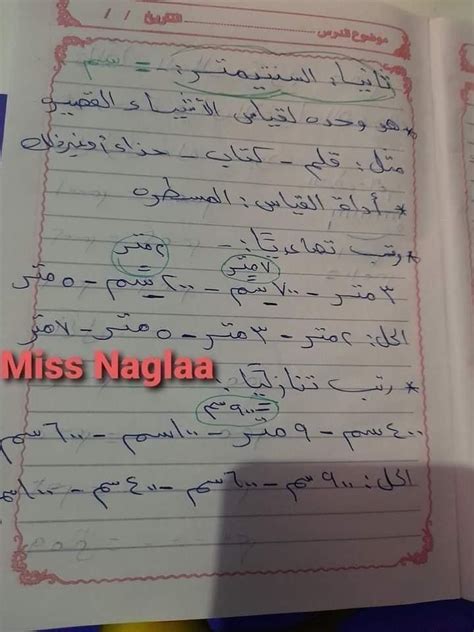 موضوع الدرس
التاريخ / /
ثانيا: السنتيمتر:- = سم
* هو وحده لقياس الأشياء القصيره
مثل: قلم - كتاب - حذاء
* أداة القياس: المسطره
* رتب تصاعديًا:-
٢ متر
٧ متر
٣ متر - ٧٠٠ سم - ٢٠٠ سم - ٥ متر
الحل: ٢ متر - ٣ متر - ٥ متر - ٧ متر
Miss Naglaa
* رتب تنازليًا:
= ٩٠٠ سم
٤٠٠ سم - ٩ متر - ١٠٠ سم - ٦٠٠ سم
الحل: ٩٠٠ سم - ٦٠٠ سم - ٤٠٠ سم - ١٠٠ سم